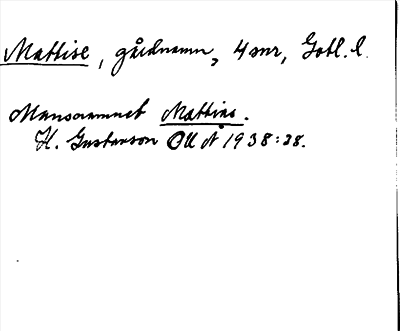 Mattise, gårdnamn, 4 snr, Gotl. l.
Mansnamnet Mattias.
H. Gustavson OUÅ 1938:28.